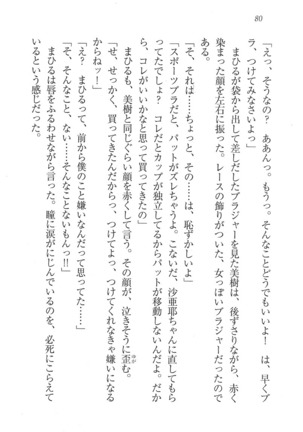 80
「えっ、そうなの？　ああんっ。もうっ。そんなことどうでもいいわっ！　は、早くブ
ラ、つけてみなさいよっ」
「そ、それは……ちょっと、その……は、恥ずかしいよ」
「スポーツブラだと、パットがズレちゃうよ。こないだ、沙亜耶ちゃんに直してもら
ってたでしょ？　コレだとカップが独立してるからパットが移動しないんだって。だか
ら、コレがいいかなと思って買ってきたの」
まひるが袋から出して差しだしたブラジャーを見た美樹は、後ずさりながら、赤く
染まった顔を左右に振った。レースの飾りがついた、女っぽいブラジャーだったので
ある。
まひるも、美樹と同じぐらい顔を赤くして言う。その顔が、泣きそうに歪む。
ゆが
「せ、せっかく、買ってきたんだから、つけてよっ、つけてくれなきゃ嫌いになる
からねッ！」
「え？　まひるって、前から僕のこと嫌いなんだって思ってた……」
「そ、そんなこと、ない……そんなことないもんっ‼」
まひるは唇をふるわせながら言った。瞳に涙がにじんでいるのを、必死にこらえて
いるという感じだった。